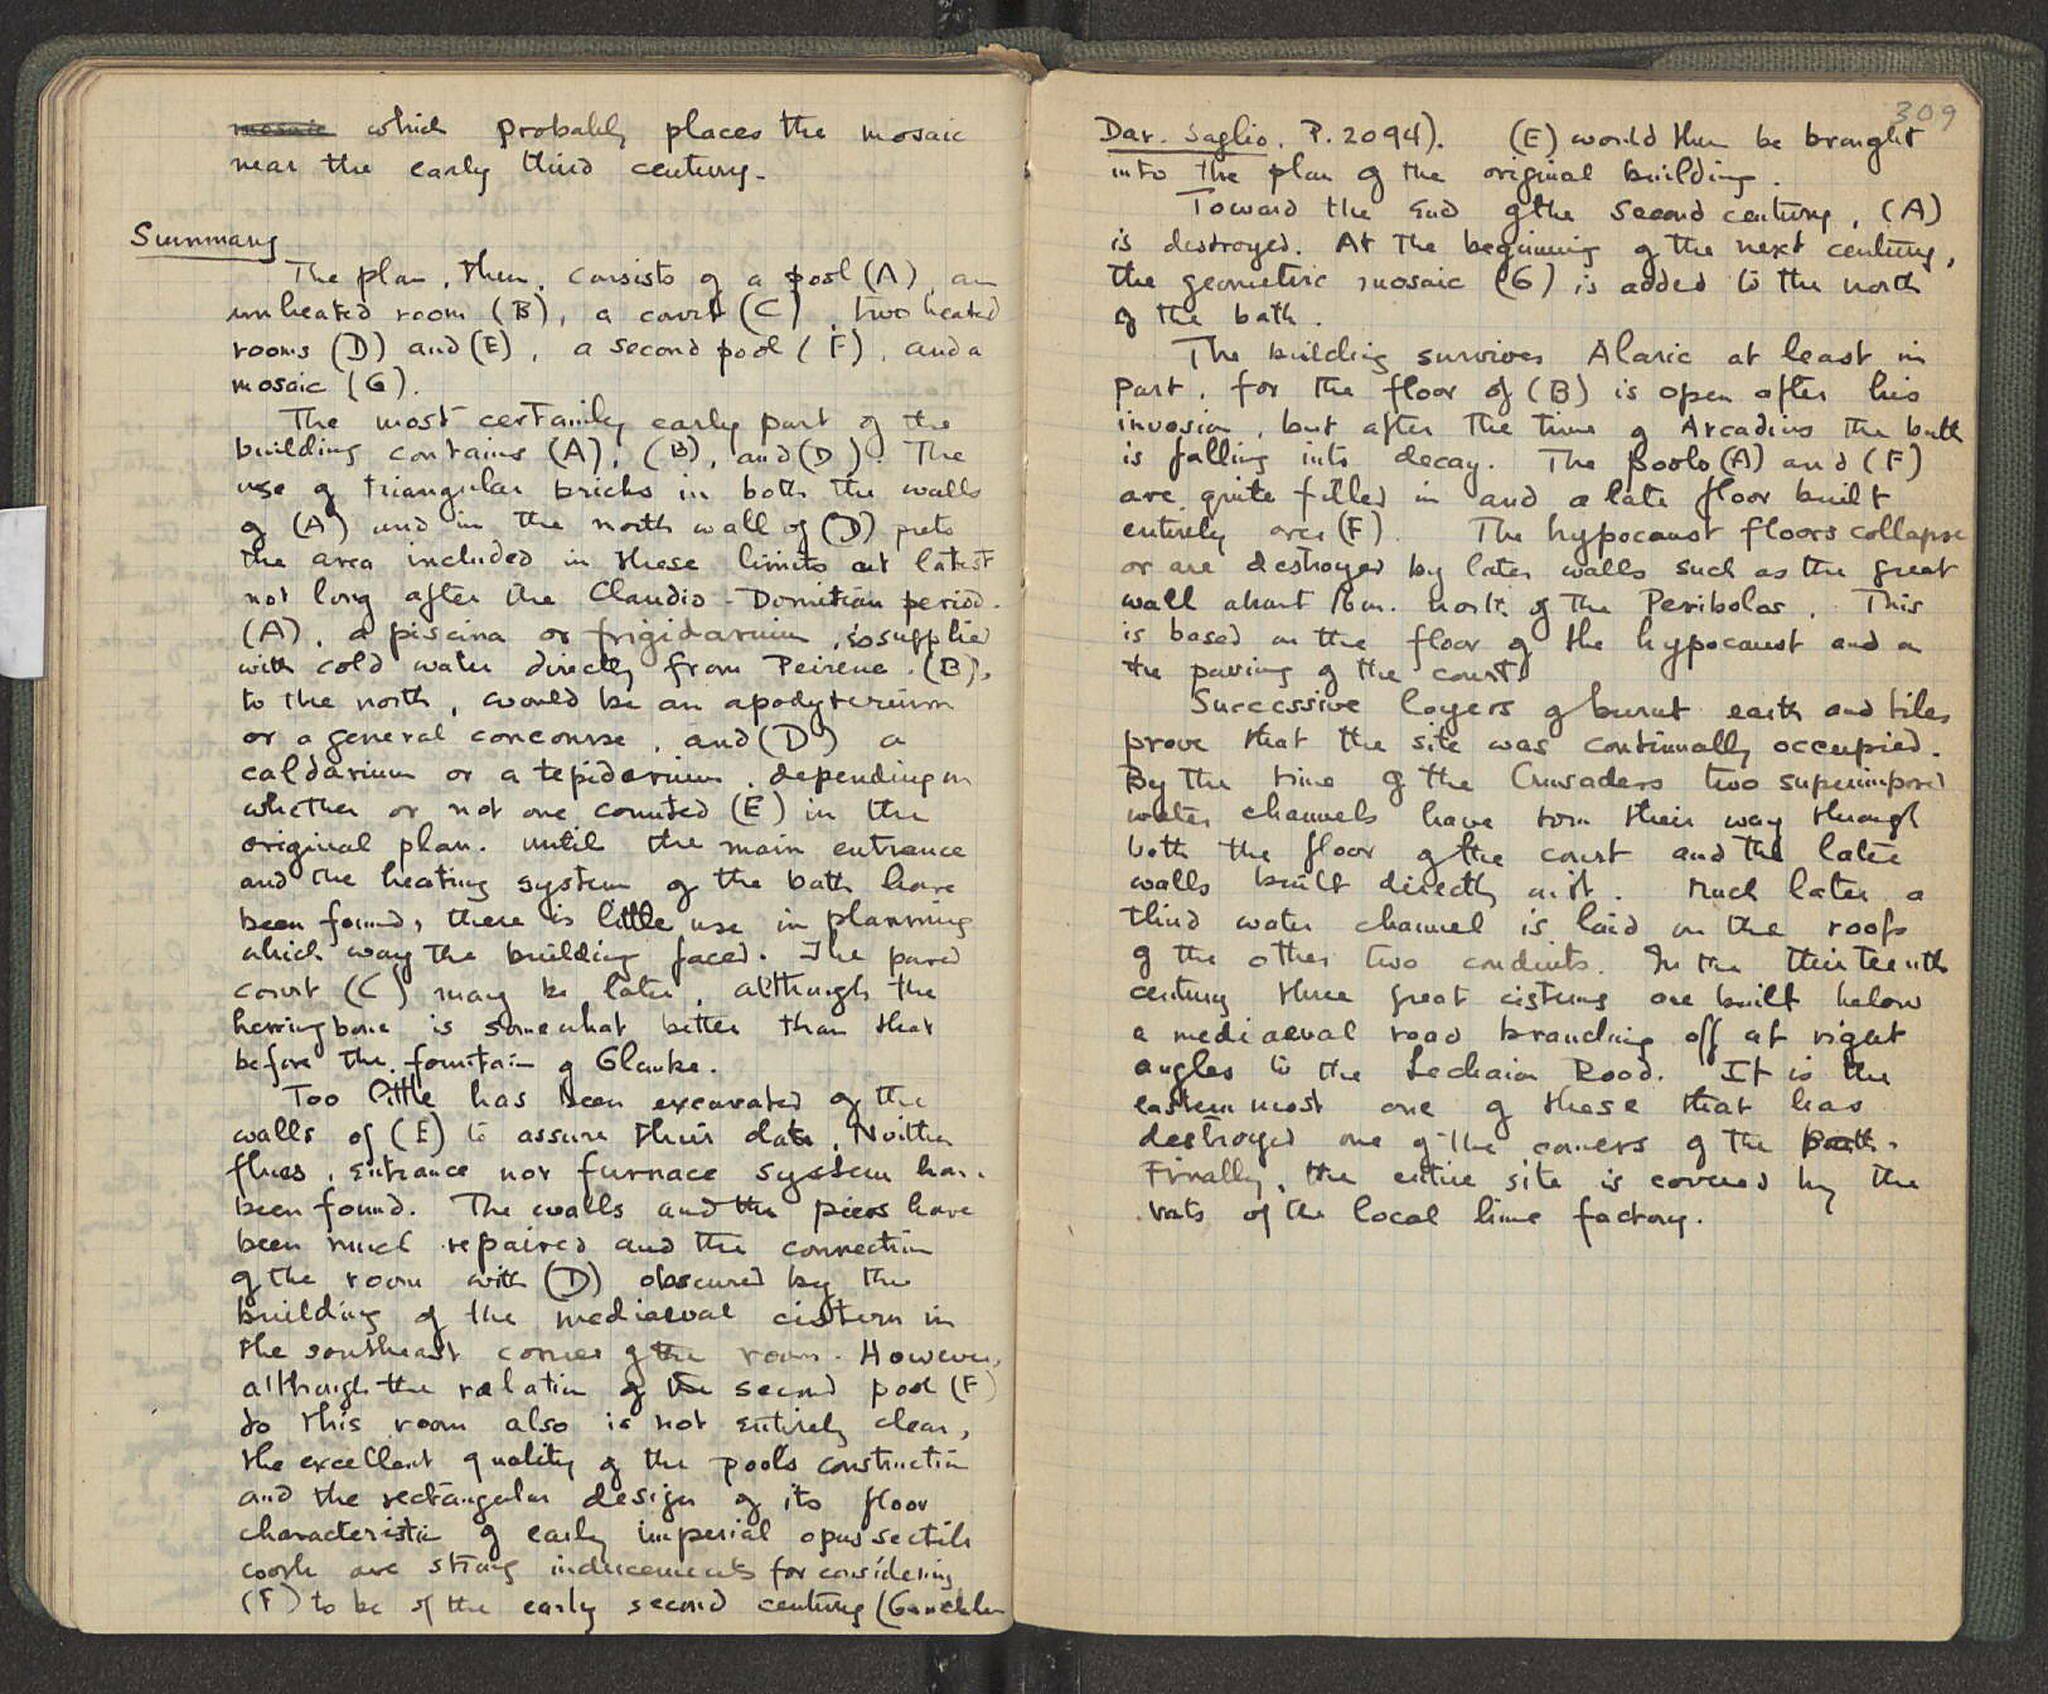 mosaic which probably places the mosaic
near the early third century.
Summary
The plan, then, consists of a pool (A), an
unheated room (B), a court (C), two heated
rooms (D) and (E), a second pool (F), and a
mosaic (G).
The most certainly early part of the
building contains (A), (B), and (D). The
use of triangular bricks in both the walls
of (A) and in the north wall of (D) puts
the area included in these limits at latest
not long after the Claudio-Domitian period.
(A), a piscina or frigidarium, is supplied
with cold water directly from Peirene. (B),
to the north, would be an apodyterium
or a general concourse, and (D) a
caldarium or a tepidarium, depending on
whether or not one counted (E) in the
original plan. Until the main entrance
and the heating system of the bath have
been found, there is little use in planning
which way the building faced. The paved
court (C) may be later, although the
herringbone is somewhat better than that
before the fountain of Glauke.
Too little has been excavated of the
walls of (E) to assure their date. Neither
flues, entrance nor furnace system have
been found. The walls and the piers have
been much repaired and the connection
of the room with (D) obscured by the
building of the mediaeval cistern in
the southeast corner of the room. However,
although the relation of the second pool (F)
to this room also is not entirely clear,
the excellent quality of the pool's construction
and the rectangular design of its floor
characteristic of early imperial opus sectile
work are strong inducements for considering
(F) to be of the early second century (Gauckler
309
Dar. Saglio. P. 2094). (E) would then be brought
into the plan of the original building.
Toward the end of the second century, (A)
is destroyed. At the beginning of the next century,
the geometric mosaic (G) is added to the north
of the bath.
The building survives Alaric at least in
part, for the floor of (B) is open after his
invasion, but after the time of Arcadius the bath
is falling into decay. The pools (A) and (F)
are quite filled in and a late floor built
entirely over (F). The hypocaust floors collapse
or are destroyed by later walls such as the great
wall about 16 m. north of the Peribolos. This
is based on the floor of the hypocaust and on
the paving of the court.
Successive layers of burnt earth and tiles
prove that the site was continually occupied.
By the time of the Crusaders two superimposed
water channels have torn their way through
both the floor of the court and the later
walls built directly on it. Much later a
third water channel is laid on the roofs
of the other two conduits. In the thirteenth
century three great cisterns are built below
a mediaeval road branching off at right
angles to the Lechaion Road. It is the
easternmost one of these that has
destroyed one of the corners of the bath.
Finally, the entire site is covered by the
vats of the local lime factory.